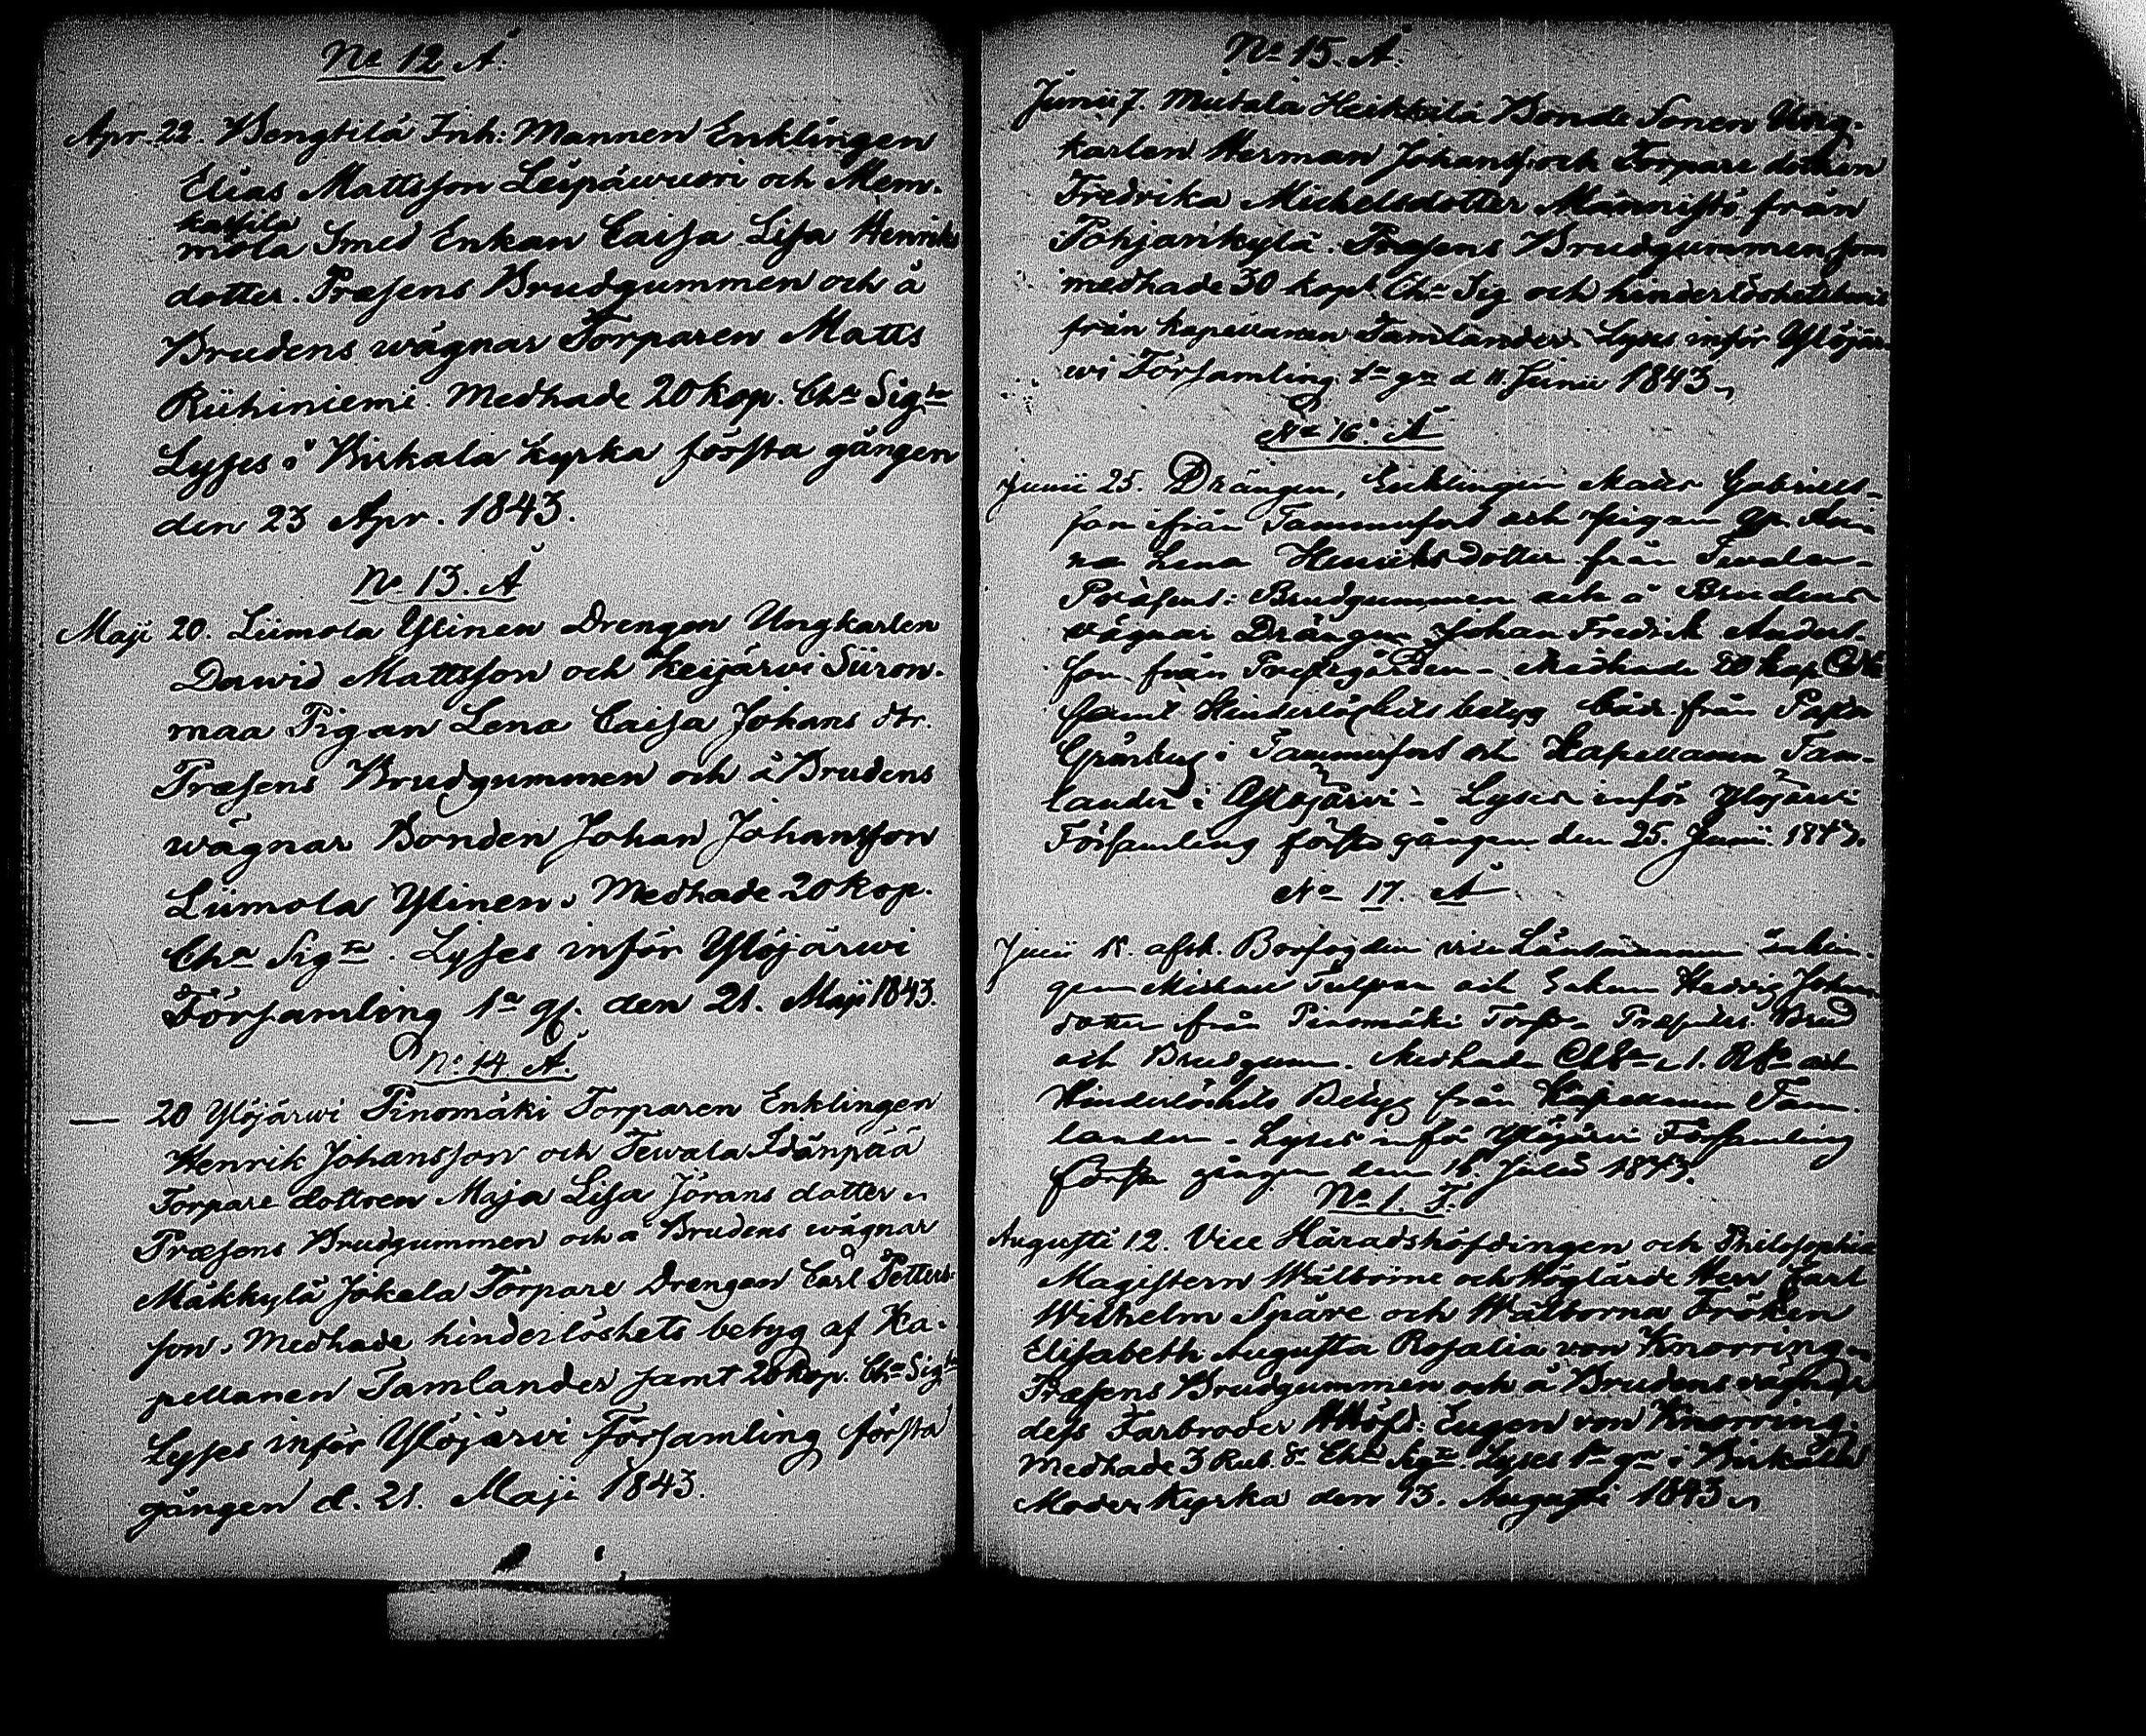 No 12 Å.
Apr. 22. Bengtilä Inh: Mannen Enklingen
Elias Mattsson Leipäwuori och Mem-
kassila
mola Smed Enkan Caisa Lisa Henriks
dotter. Præsens Brudgummen och å
Brudens wägnar Torparen Matts
Riihiniemi. Medhade 20 kop. Cha Sigta
Lyses i Birkala Kyrka första gången
den 23 Apr. 1843.
No 13. Å
Maji 20. Liimola Ylinen Drengen Ungkarlen
Dawid Mattsson och Keijärvi Siiron-
maa Pigan Lena Caisa Johans dtr.
Præsens Brudgummen och å Brudens
wägnar Bonden Johan Johansson
Liimola Ylinen. Medhade 20 kop.
Cha Sigta. Lyses inför Ylöjärwi
Församling 1a gg. den 21. Maji 1843.
No 14 Å.
— 20 Ylöjärwi Pinomäki Torparen Enklingen
Henrik Johansson och Tewala Idänpää
Torpare dottren Maja Lisa Jörans dotter.
Præsens Brudgummen och å Brudens wägnar
Mäkkylä Jokela Torpare Drengen Carl Petters-
son. Medhade hinderlöshets betyg af Ka-
pellanen Tamlander samt 20 kop. Cha Sigta
Lyses inför Ylöjärvi Församling första
gången d. 21. Maji 1843.
No 15. Å.
Junii 7. Mutala Heikkilä Bonde Sonen Ung-
karlen Herman Johanss. och Torpare dottren
Fredrika Michelsdotter Männistö från
Pohjankylä. Præsens Brudgummen som
medhade 30 kop. Cha Sig och hinderlöshets
från kapellanen Tamlander. Lyses inför Ylöjär-
wi Församling 1a gn d 11. Junii 1843.
No 16. Å
Junii 25. Drängen, Enklingen Mats Gabriels-
son ifrån Tammerfors och pigan
na Lena Henriksdotter från Tevala-
Præsens: Brudgummen och å Brudens
vägnar Drängen Johan Fredrik Anders-
son från Prestgården - Medhade 20 kop
samt Hinderlöshets betyg både från Pastor
i Tammerfors och Kapellanen Tam-
lander i Ylöjärvi - Lyses inför Ylöjärvi
Församling första gången den 25. Junii 1843.
No 17. Å
afsk. vice Länsmannen Enklin-
gen Michael Tulpan och Enkan Hedvig Johans
dotter ifrån Pinomäki Torp - Præsentes: Brud
och Brudgum. Medhade och
Hinderlöshets Betyg från Kapellanen Tam-
lander - Lyses inför Ylöjärvi Församling
första gången den 16. Julii 1843.
No 1. F.
Augusti 12. Vice Häradshöfdingen och Philosophiæ
Magistern Wälborne och Höglärde Herr Carl
Wilhelm Späre och Wälborna Fröken
Elisabeth Augusta Rosalia von Knorring.
Præsens Brudgummen och å Brudens
dess Farbroder Eugen von Knorring.
Medhade 3 Rub. Sr Cha Sigta. Lyses 1a gn i Birkala
Moder Kyrka den 13. Augusti 1843.